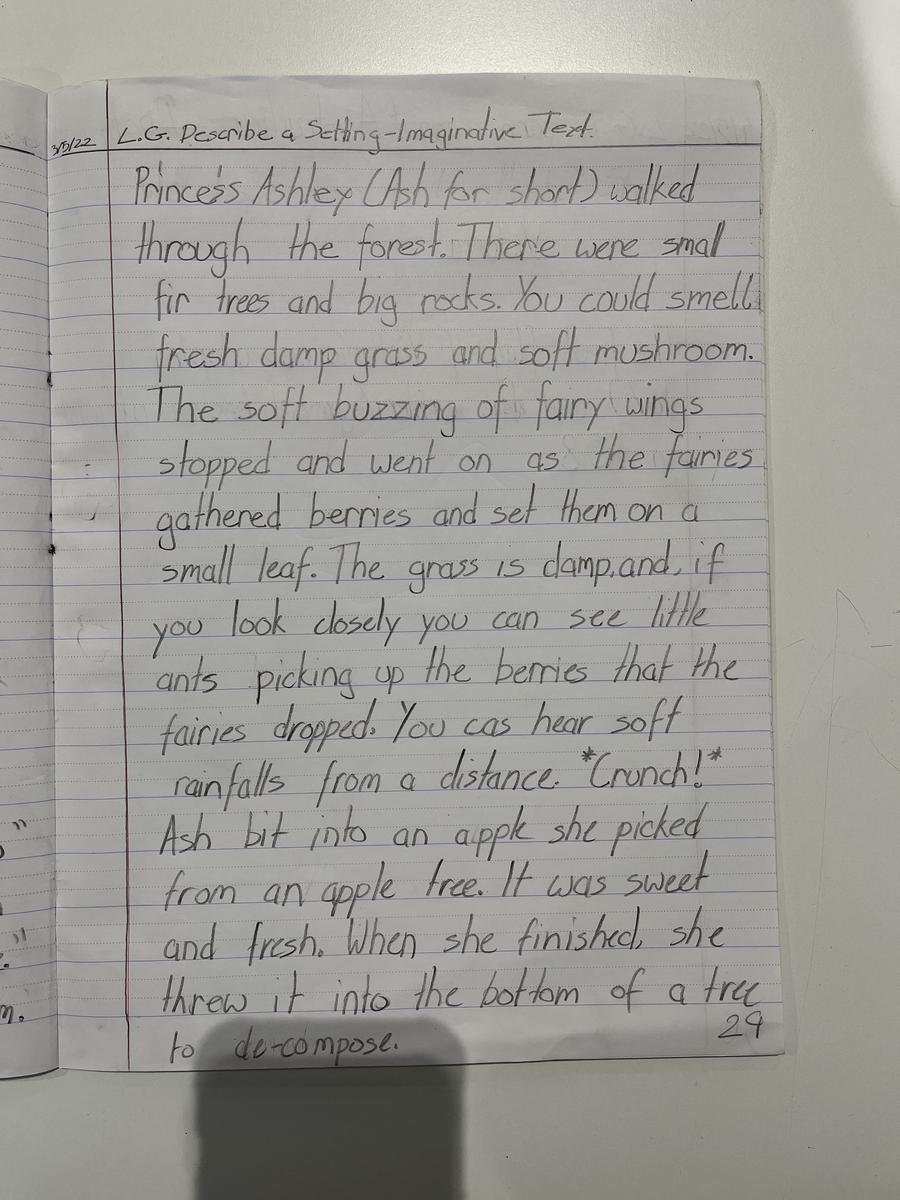 3/5/22 L.G. Describe a Setting-Imaginative Text.
Princess Ashley (Ash for short) walked
through the forest. There were small
fir trees and big rocks. You could smell
fresh damp grass and soft mushroom.
The soft buzzing of fairy wings
stopped and went on as the fairies
gathered berries and set them on a
small leaf. The grass is damp, and, if
you look closely you can see little
ants picking up the berries that the
fairies dropped. You cas hear soft
rainfalls from a distance. *Crunch!*
Ash bit into an apple she picked
from an apple tree. It was sweet
and fresh. When she finished, she
threw it into the bottom of a tree
to de-compose.
29
m.